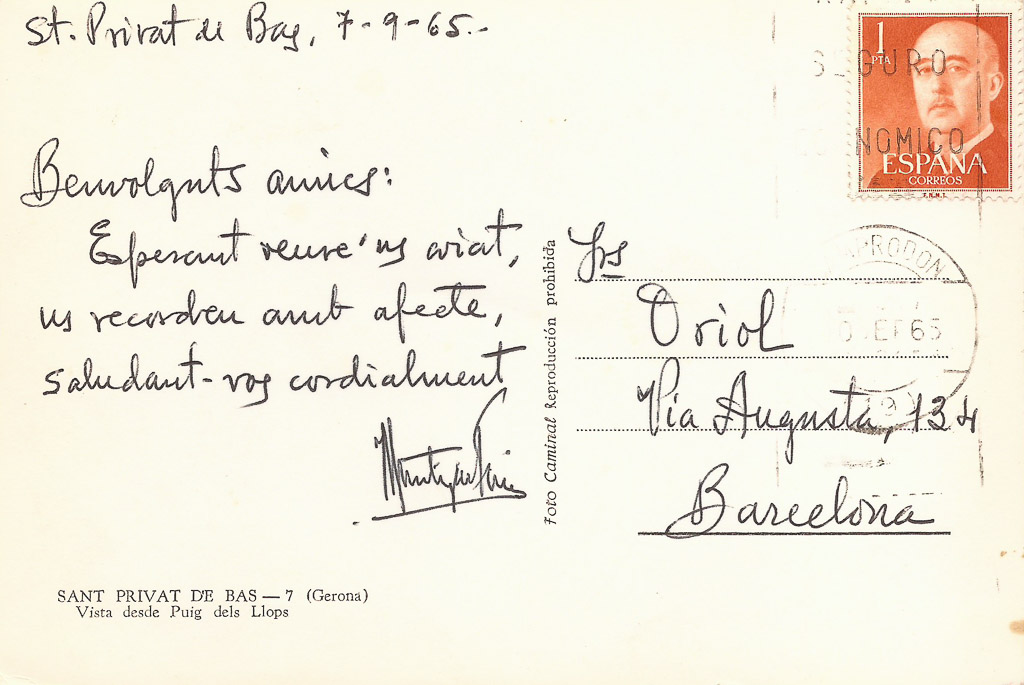 St. Privat de Bas, 7-9-65.-
Benvolguts amics:
Esperant veure'us aviat,
us recorden amb afecte,
saludant-vos cordialment
SANT PRIVAT D'E BAS — 7 (Gerona)
Vista desde Puig dels Llops
Foto Caminal Reproducción prohibida
1
PTA
SEGURO
NOMICO
ESPAÑA
CORREOS
F.N.M.T.
PRODON
65
Srs
Oriol
Via Augusta, 134
Barcelona